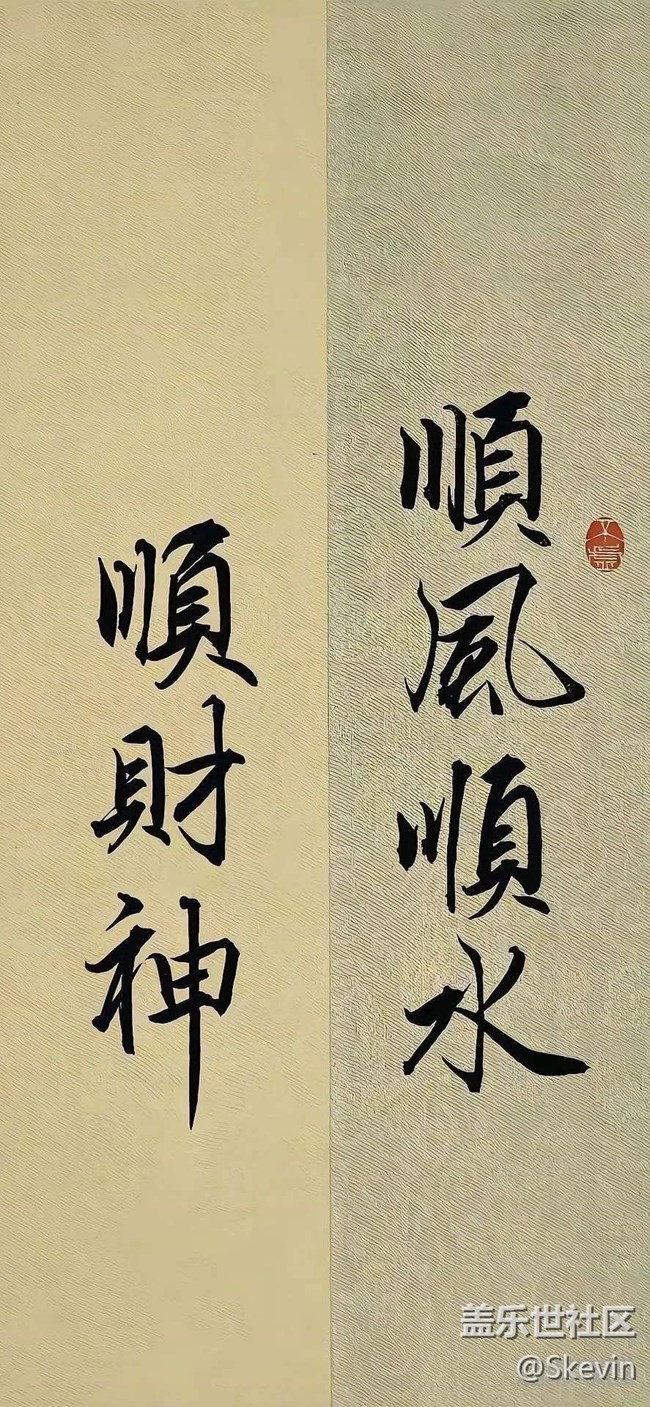 順風順水
順財神
盖乐世社区
@Skevin